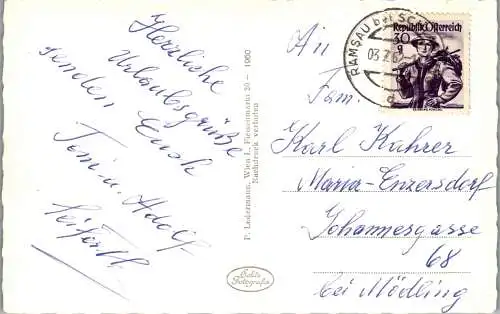 Herzliche
Urlaubsgrüße
senden Euch
Toni u. Adolf
P. Ledermann, Wien I., Fleischmarkt 20 - 1960
Nachdruck verboten
Echte
Fotografie
An
Fam.
Karl Kührer
Maria-Enzersdorf
Johannesgasse
68
bei Mödling
RAMSAU bei SC
03.7.6
d
Republik Österreich
30
g